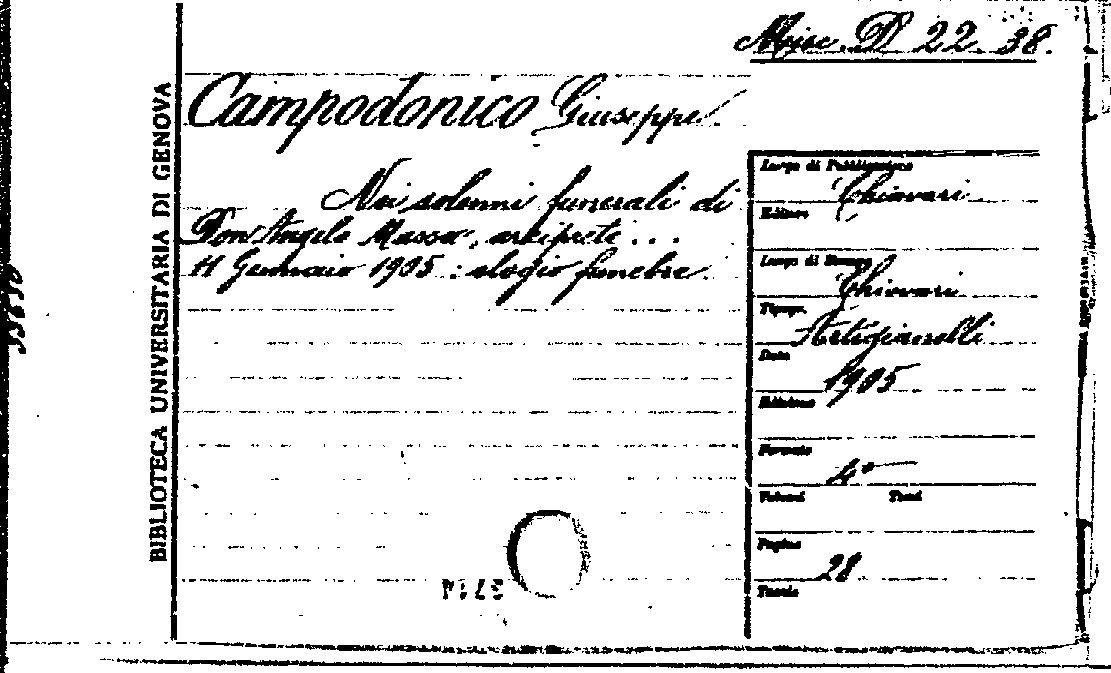 Misc. D 22. 38.
BIBLIOTECA UNIVERSITARIA DI GENOVA
Campodonico Giuseppe.
Nei solenni funerali di
Don Angelo Massa, arciprete...
11 Gennaio 1905: elogio funebre.
Luogo di Pubblicazione
Chiavari
Editore
Luogo di Stampa
Chiavari
Tipogr.
Artigianelli
Data
1905
Edizione
Formato
4º
Volumi Tomi
Pagine
28
Tavole